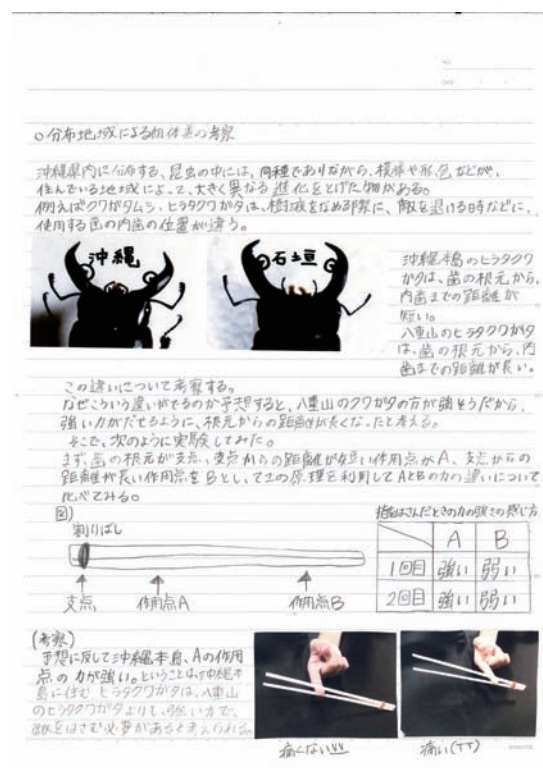 ○分布地域による個体差の考察
沖縄県内に分布する、昆虫の中には、同種でありながら、模様や形、色などが、
住んでいる地域によって、大きく異なる進化をとげた物がある。
例えばクワガタムシ、ヒラタクワガタは、樹液をなめる際に、敵を退ける時などに、
使用する歯の内歯の位置が違う。
沖縄
石垣
沖縄本島のヒラタクワ
ガタは、歯の根元から、
内歯までの距離が
短い。
八重山のヒラタクワガタ
は、歯の根元から、内
歯までの距離が長い。
この違いについて考察する。
なぜこういう違いがでるのか予想すると、八重山のクワガタの方が強そうだから、
強い力がだせるように、根元からの距離が長くなったと考える。
そこで、次のように実験してみた。
まず、歯の根元が支点、支点からの距離が短い作用点がA、支点からの
距離が長い作用点をBとし、てこの原理を利用してAとBの力の違いについて
比べてみる。
図)
割りばし
支点 作用点A 作用点B
指をはさんだときの力の強さの感じ方
A B
1回目 強い 弱い
2回目 強い 弱い
(考察)
予想に反して沖縄本島、Aの作用
点の力が強い。ということは、沖縄本
島に住むヒラタクワガタは、八重山
のヒラタクワガタよりも、強い力で、
敵をはさむ必要があると考えられる。
痛くない
痛い(TT)